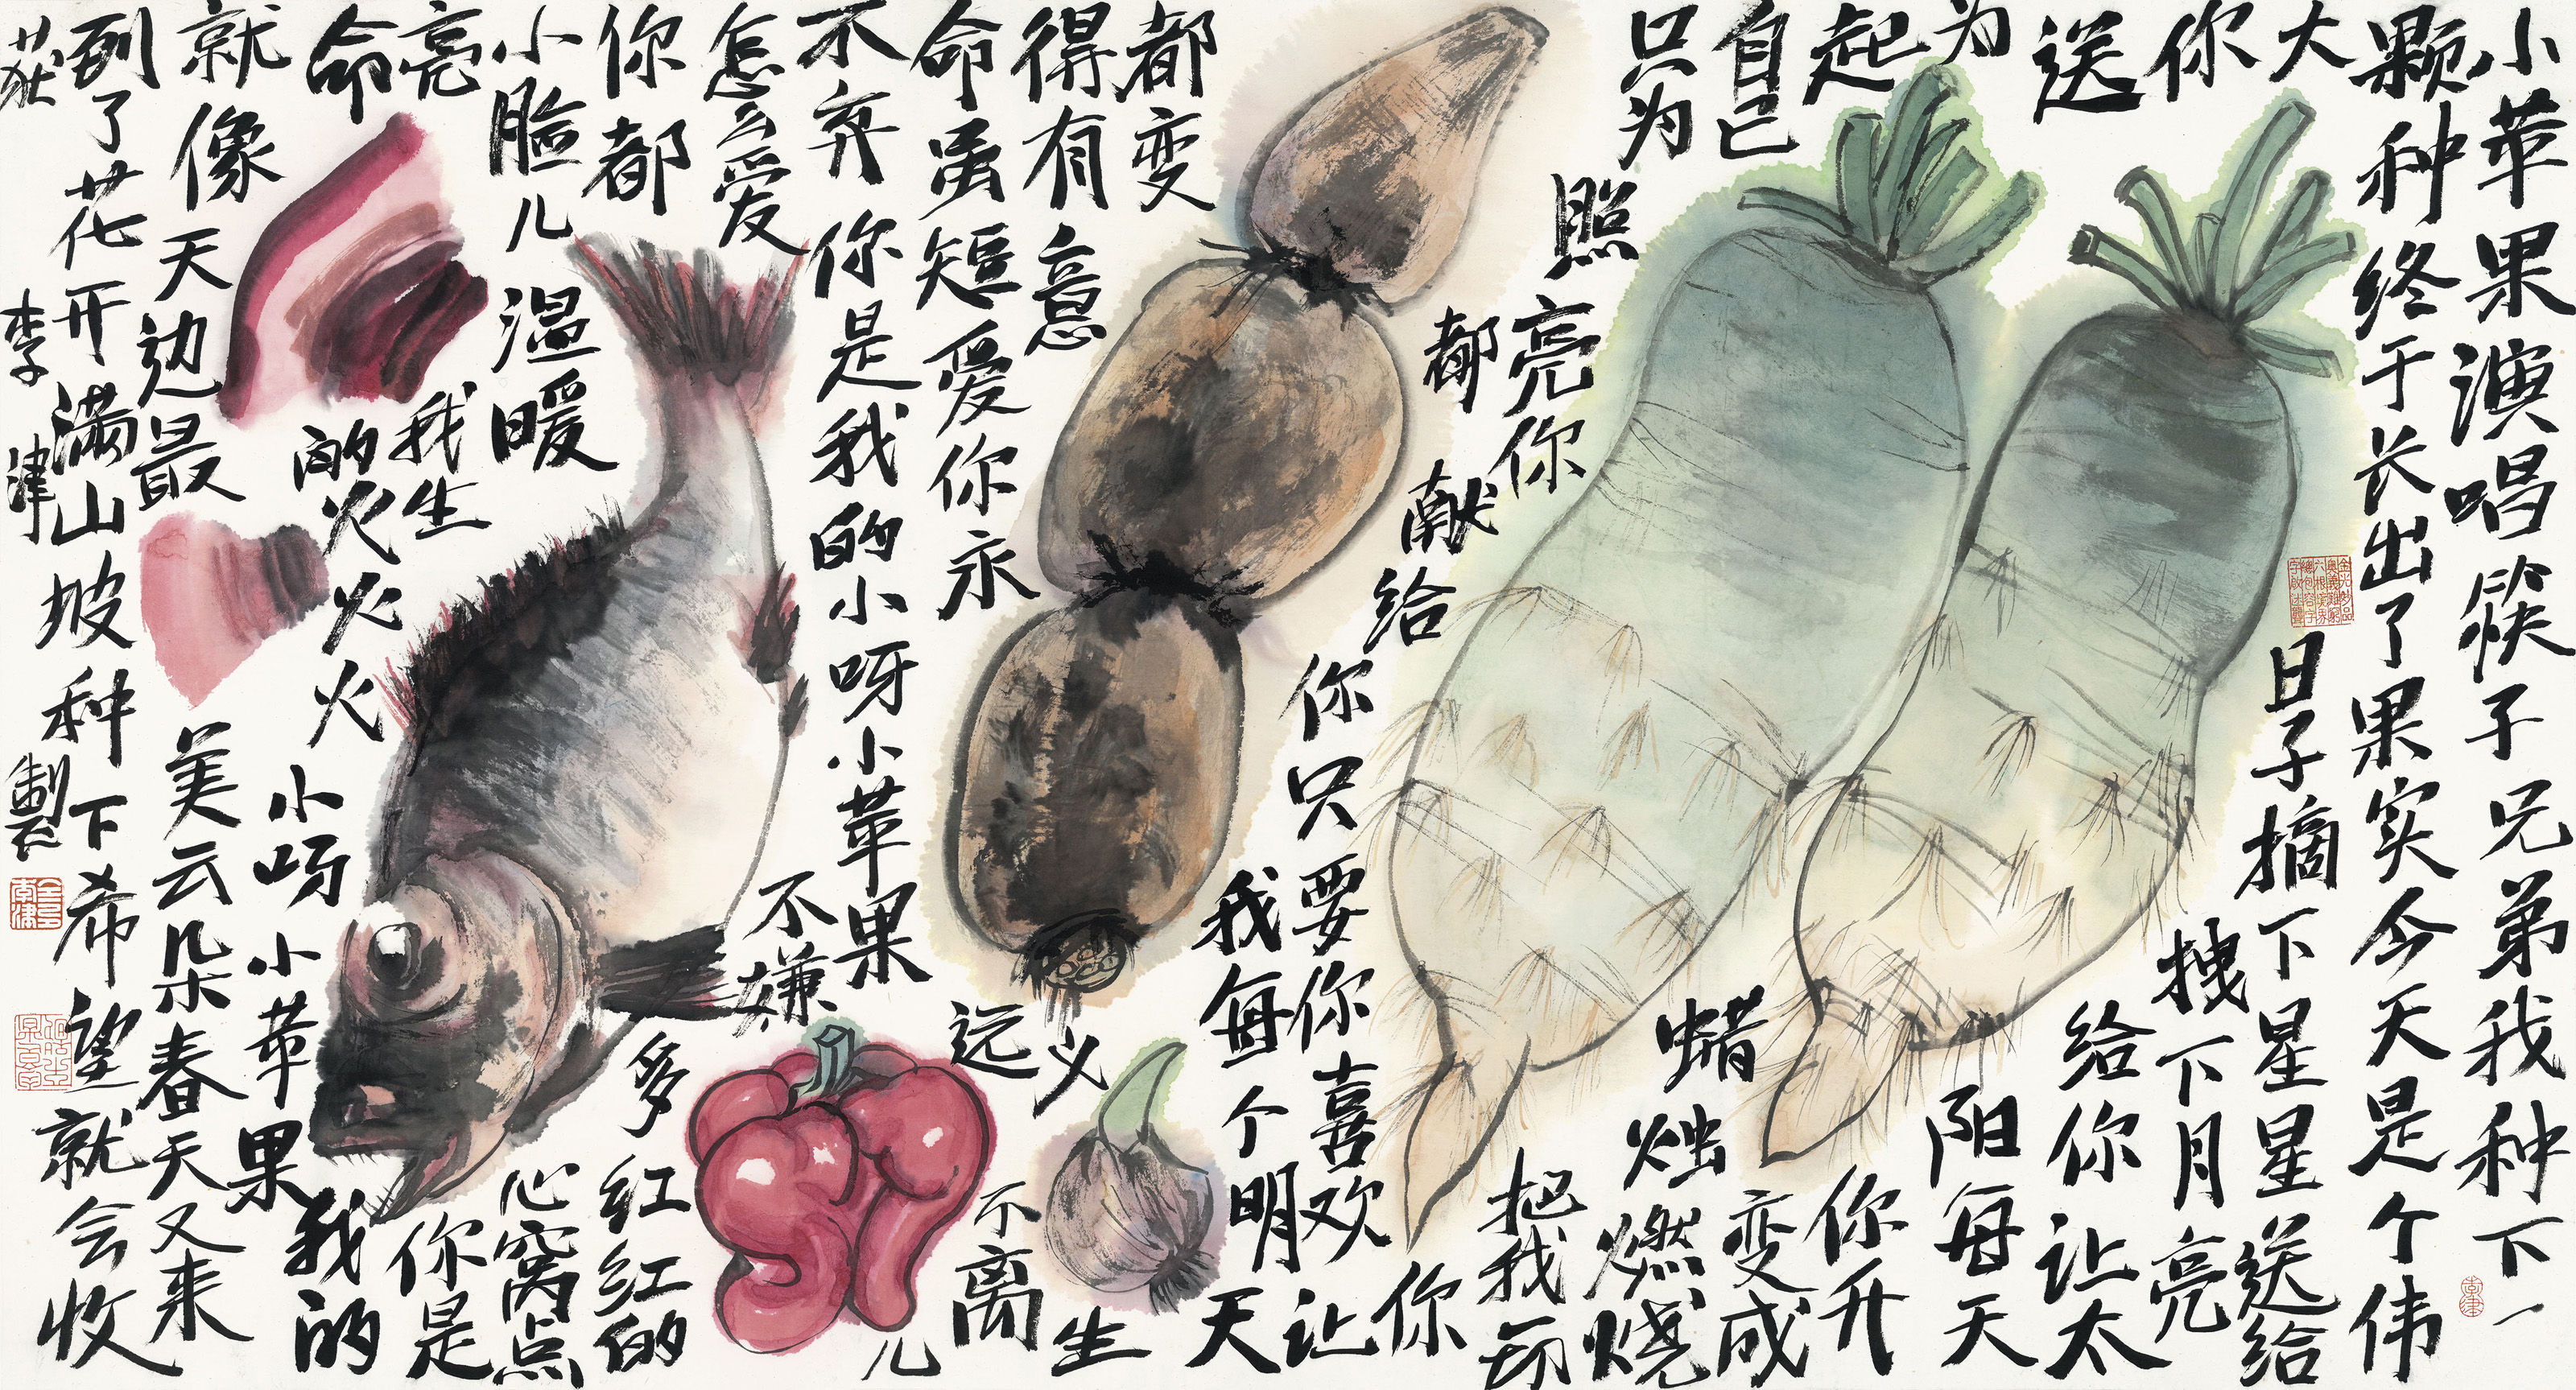 小苹果演唱筷子兄弟我种下一
颗种终于长出了果实今天是个伟
大日子摘下星星送给
你拽下月亮
送给你让太
阳每天
为你升
起变成
蜡烛燃烧
自己
只为照亮你
把我一切
都献给你只要你喜欢
你让
我每个明天
都变
得有意义
生
命虽短爱你永
远不离
不弃你是我的小呀小苹果
儿
怎么爱
你都
不嫌
多红红的
小脸儿温暖
心窝点
亮我生
命的火火火
你是
我的
小呀小苹果
就像天边最
美云朵春天又来
到了花开满山坡种下希望就会收
获
李津製
李津